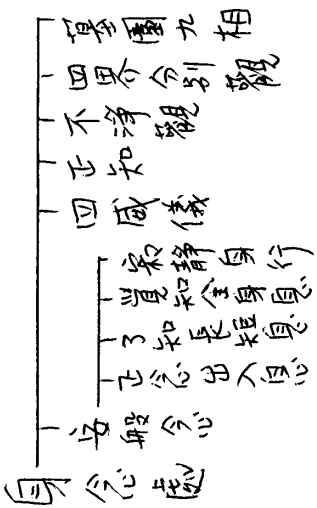 身念處
安般念
正念出入息
了知長短息
覺知全身息
寂靜身行
四威儀
正知
不淨觀
四界分別觀
墓園九相